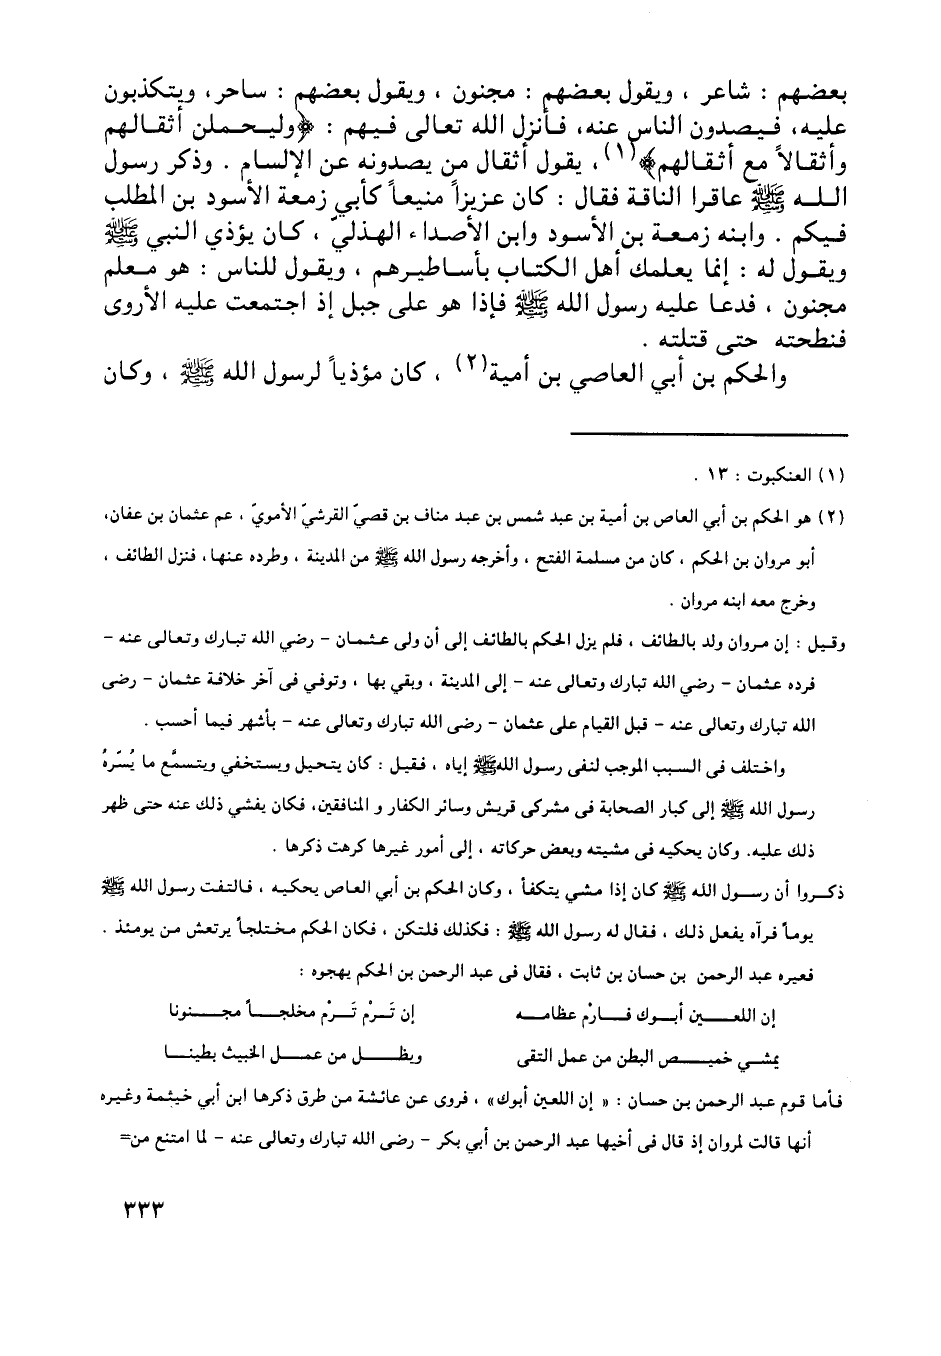 بعضهم : شاعر ، ويقول بعضهم : مجنون ، ويقول بعضهم : ساحر، ويتكذبون
عليه، فيصدون الناس عنه، فأنزل الله تعالى فيهم : ﴿وليحملن أثقالهم
وأثقالاً مع أثقالهم﴾(١)، يقول أثقال من يصدونه عن الإلسام . وذكر رسول
الله ﷺ عاقرا الناقة فقال : كان عزيزاً منيعاً كأبي زمعة الأسود بن المطلب
فيكم . وابنه زمعة بن الأسود وابن الأصداء الهذليّ ، كان يؤذي النبي ﷺ
ويقول له : إنما يعلمك أهل الكتاب بأساطيرهم ، ويقول للناس : هو معلم
مجنون ، فدعا عليه رسول الله ﷺ فإذا هو على جبل إذ اجتمعت عليه الأروى
فنطحته حتى قتلته .
والحكم بن أبي العاصي بن أمية(٢) ، كان مؤذياً لرسول الله ﷺ ، وكان
(١) العنكبوت : ١٣ .
(٢) هو الحكم بن أبي العاص بن أمية بن عبد شمس بن عبد مناف بن قصيّ القرشيّ الأمويّ ، عم عثمان بن عفان،
أبو مروان بن الحكم ، كان من مسلمة الفتح ، وأخرجه رسول الله ﷺ من المدينة ، وطرده عنها، فنزل الطائف ،
وخرج معه ابنه مروان .
وقيل : إن مروان ولد بالطائف ، فلم يزل الحكم بالطائف إلى أن ولى عثمان – رضي الله تبارك وتعالى عنه –
فرده عثمان – رضي الله تبارك وتعالى عنه – إلى المدينة ، وبقي بها ، وتوفي في آخر خلافة عثمان – رضى
الله تبارك وتعالى عنه – قبل القيام على عثمان – رضى الله تبارك وتعالى عنه – بأشهر فيما أحسب .
واختلف فى السبب الموجب لنفى رسول اللهﷺ إياه ، فقيل : كان يتحيل ويستخفي ويتسمَّع ما يُسّرهُ
رسول الله ﷺ إلى كبار الصحابة فى مشركى قريش وسائر الكفار و المنافقين، فكان يفشي ذلك عنه حتى ظهر
ذلك عليه. وكان يحكيه فى مشيته وبعض حركاته ، إلى أمور غيرها كرهت ذكرها .
ذكروا أن رسول الله ﷺ كان إذا مشي يتكفأ ، وكان الحكم بن أبي العاص يحكيه ، فالتفت رسول الله ﷺ
يوماً فرآه يفعل ذلك ، فقال له رسول الله ﷺ : فكذلك فلتكن ، فكان الحكم مختلجاً يرتعش من يومئذ .
فعيره عبد الرحمن بن حسان بن ثابت ، فقال فى عبد الرحمن بن الحكم يهجوه :
إن اللعين أبوك فارْم عظامه إن تَرمْ تَرمْ مخلجاً مجنونا
يمشي خميص البطن من عمل التقى ويظل من عمل الخبيث بطينا
فأما قوم عبد الرحمن بن حسان : « إن اللعين أبوك» ، فروى عن عائشة من طرق ذكرها ابن أبي خيثمة وغيره
أنها قالت لمروان إذ قال فى أخيها عبد الرحمن بن أبي بكر – رضى الله تبارك وتعالى عنه – لما امتنع من=
٣٣٣